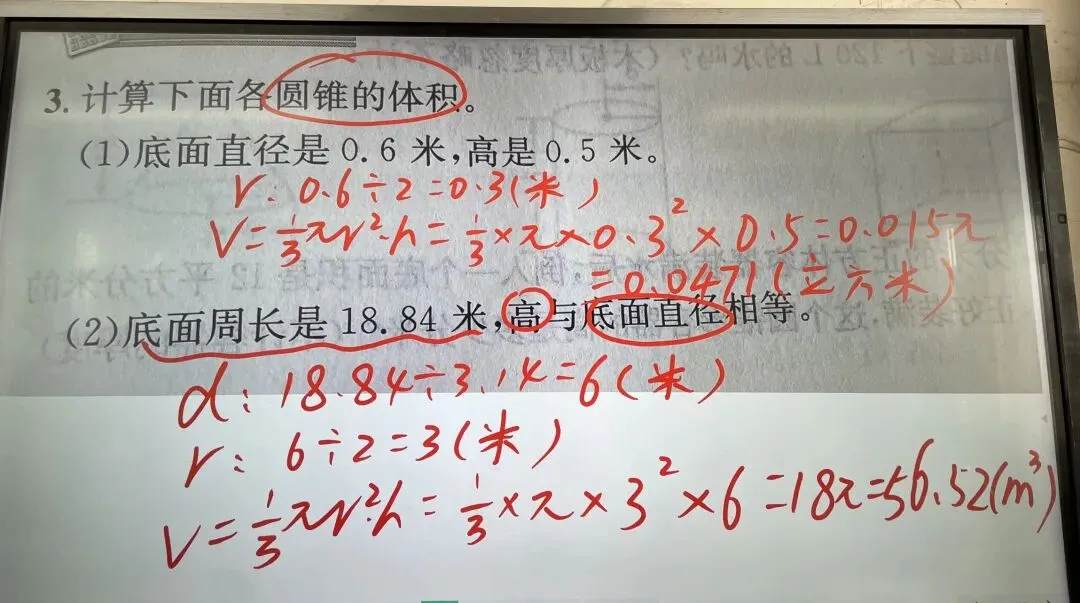 3. 计算下面各圆锥的体积。
(1)底面直径是 0.6 米,高是 0.5 米。
r: 0.6÷2=0.3(米)
V=⅓πr²·h=⅓×π×0.3²×0.5=0.015π
=0.0471(立方米)
(2)底面周长是 18.84 米,高与底面直径相等。
d: 18.84÷3.14=6(米)
r: 6÷2=3(米)
V=⅓πr²·h=⅓×π×3²×6=18π=56.52(m³)